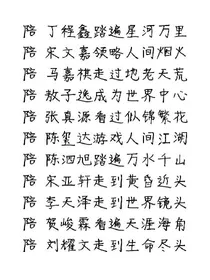 陪 丁程鑫踏遍星河万里
陪 宋文嘉领略人间烟火
陪 马嘉祺走过地老天荒
陪 敖子逸成为世界中心
陪 张真源看过似锦繁花
陪 陈玺达游戏人间江湖
陪 陈泗旭踏遍万水千山
陪 宋亚轩走到黄昏近头
陪 李天泽走到世界镜头
陪 贺峻霖看遍天涯海角
陪 刘耀文走到生命尽头